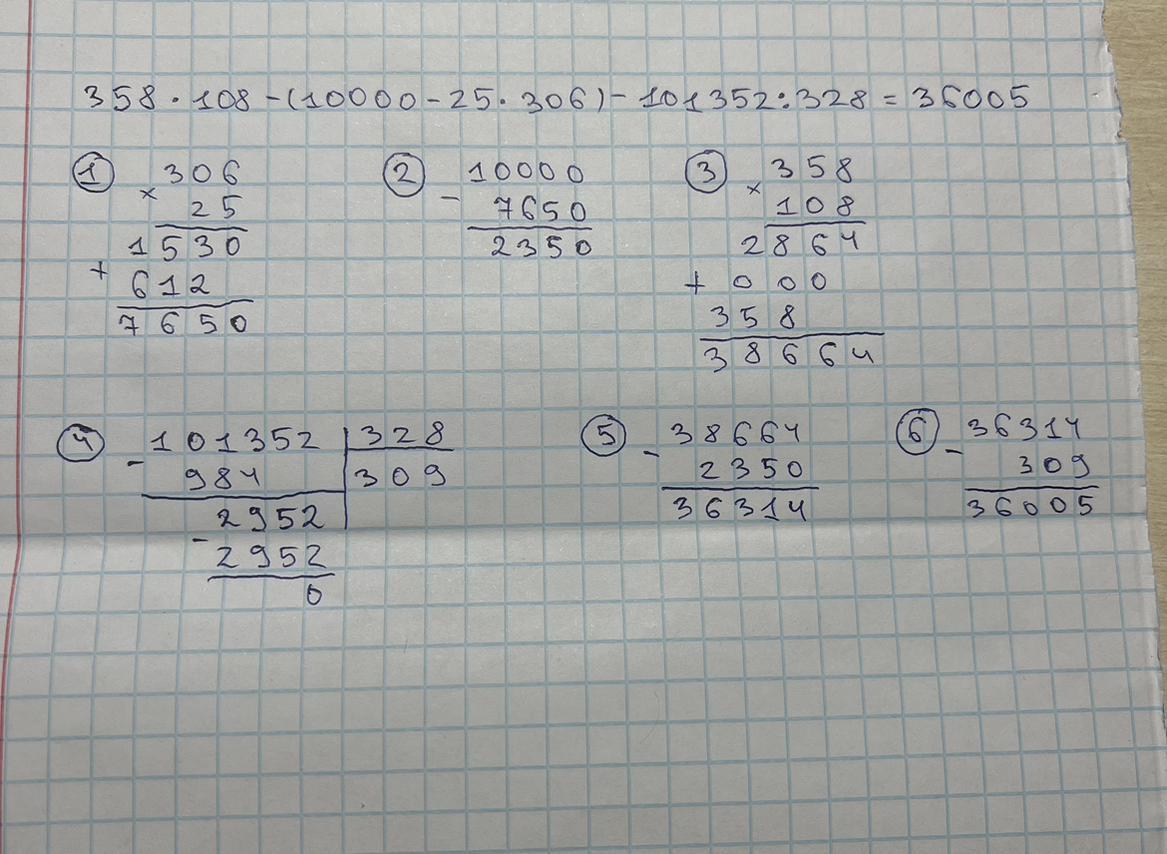 358 · 108 - (10000 - 25 · 306) - 101352 : 328 = 36005
① 306
× 25
1530
+ 612
7650
② 10000
- 7650
2350
③ 358
× 108
2864
+ 000
358
38664
④ - 101352 | 328
984 | 309
2952
- 2952
0
⑤ - 38664
2350
36314
⑥ - 36314
309
36005